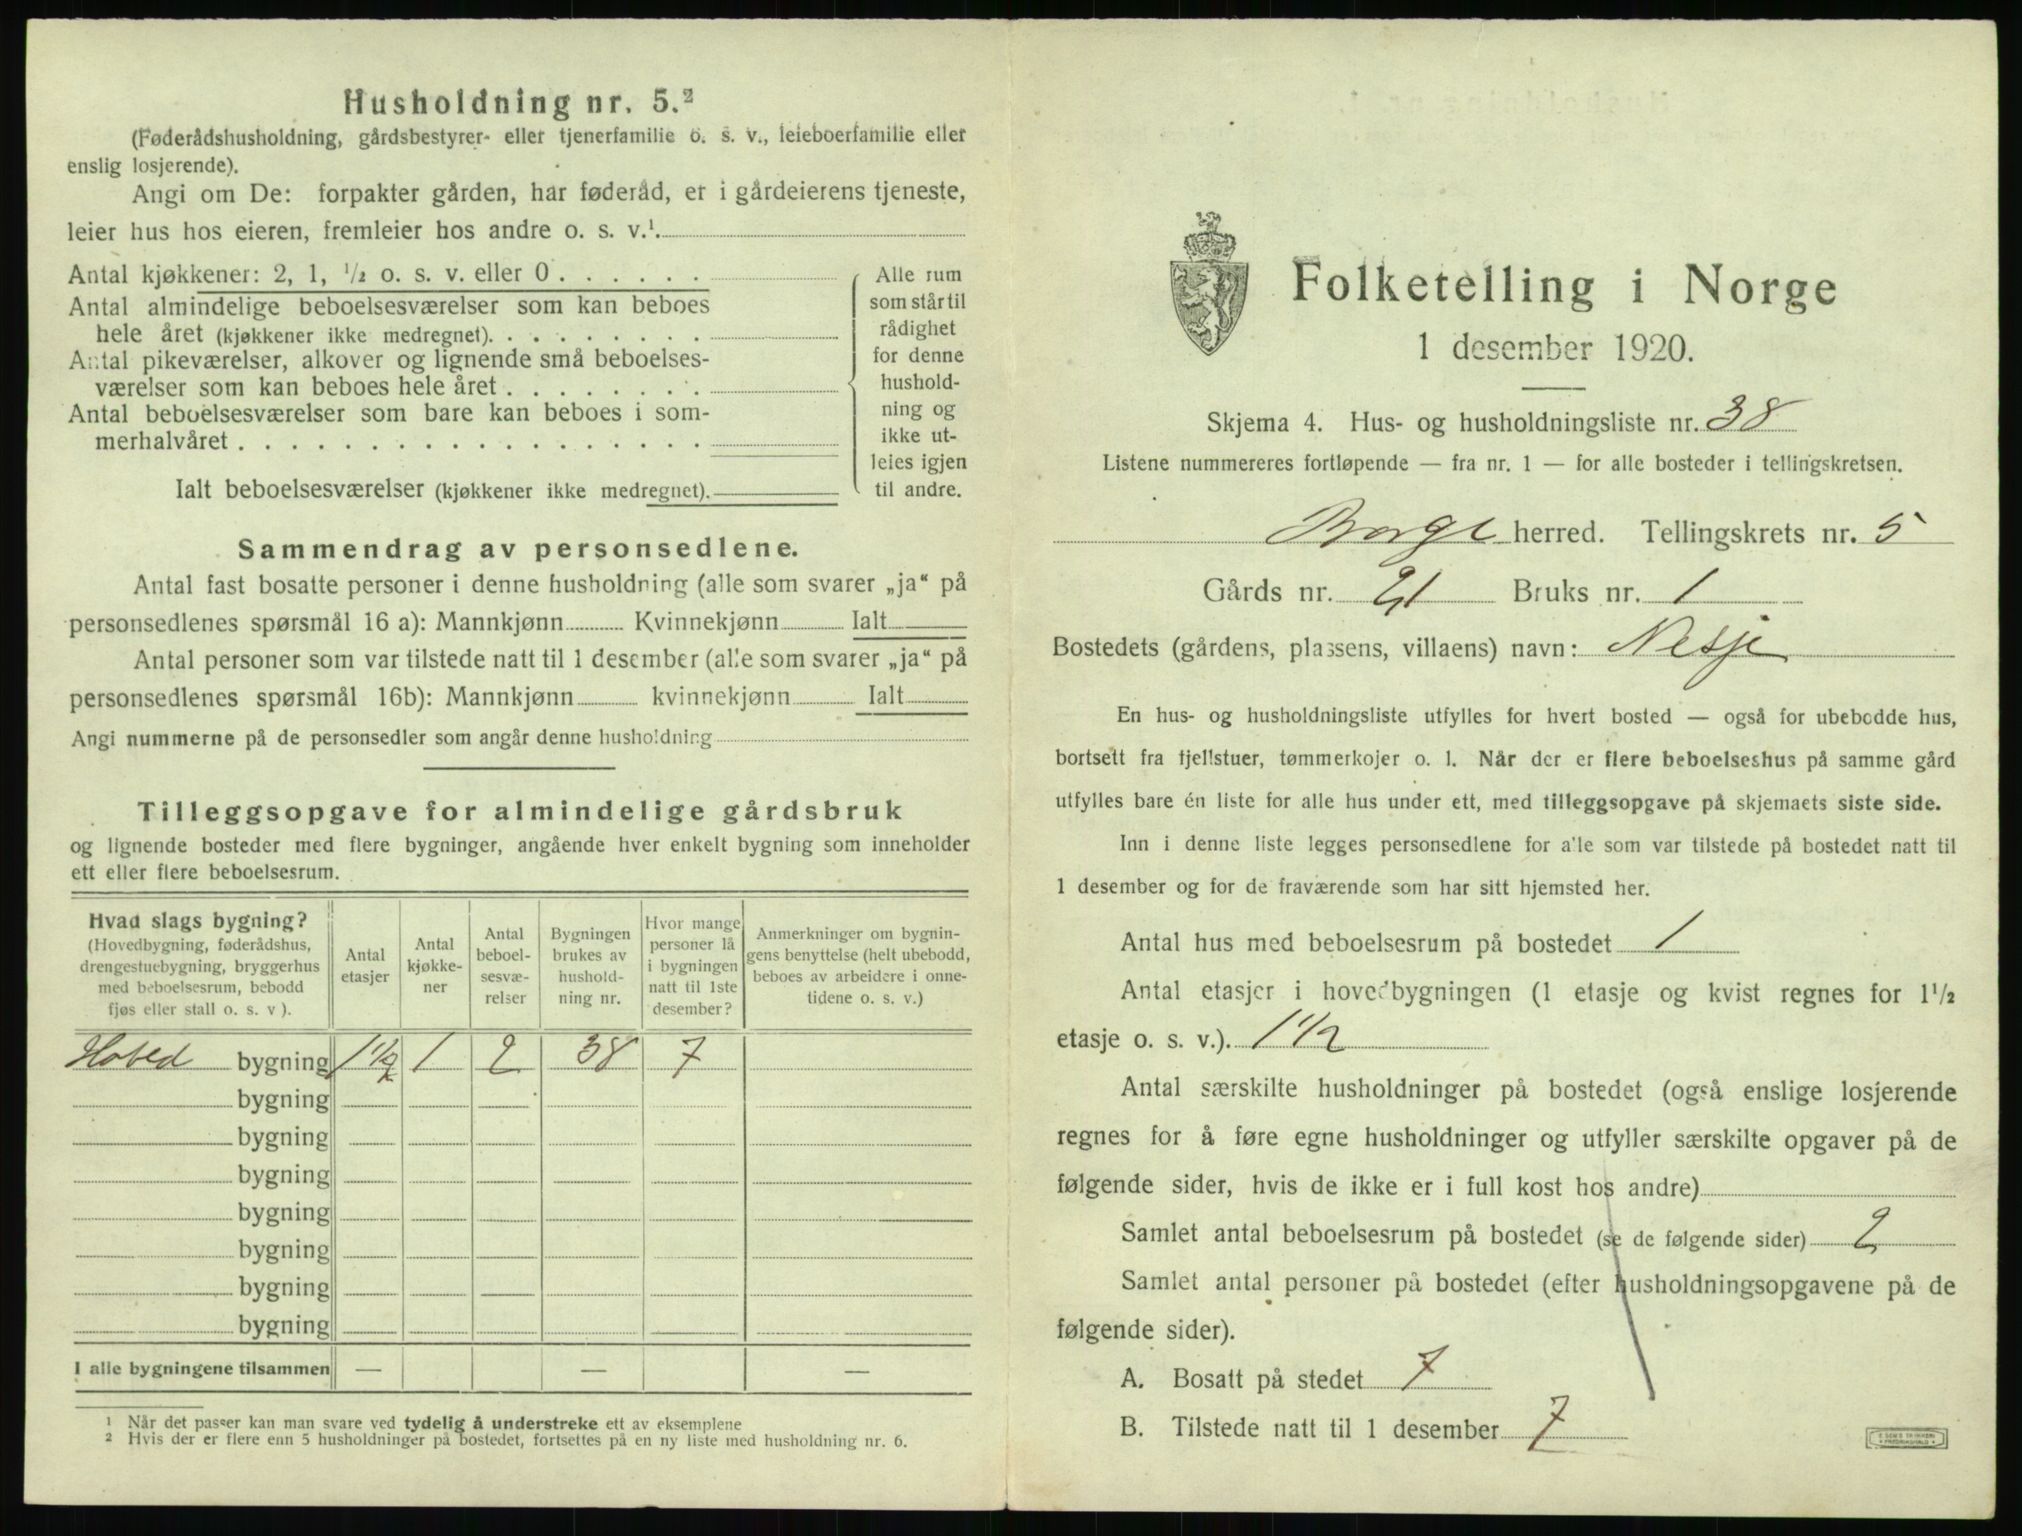 Husholdning nr. 5.²
(Føderådshusholdning, gårdsbestyrer- eller tjenerfamilie o. s. v., leieboerfamilie eller
enslig losjerende).
Angi om De: forpakter gården, har føderåd, er i gårdeierens tjeneste,
leier hus hos eieren, fremleier hos andre o. s. v.¹.
Antal kjøkkener: 2, 1, ½ o. s. v. eller 0 . . . . . .
Antal almindelige beboelsesværelser som kan beboes
hele året (kjøkkener ikke medregnet). . . . . . . . .
Antal pikeværelser, alkover og lignende små beboelses-
værelser som kan beboes hele året . . . . . . . .
Antal beboelsesværelser som bare kan beboes i som-
merhalvåret . . . . . . . . . . . . . . . . . .
Ialt beboelsesværelser (kjøkkener ikke medregnet).
Alle rum
som står til
rådighet
for denne
hushold-
ning og
ikke ut-
leies igjen
til andre.
Sammendrag av personsedlene.
Antal fast bosatte personer i denne husholdning (alle som svarer „ja“ på
personsedlenes spørsmål 16 a): Mannkjønn Kvinnekjønn Ialt
Antal personer som var tilstede natt til 1 desember (alle som svarer „ja“ på
personsedlenes spørsmål 16b): Mannkjønn kvinnekjønn Ialt
Angi nummerne på de personsedler som angår denne husholdning
Tilleggsopgave for almindelige gårdsbruk
og lignende bosteder med flere bygninger, angående hver enkelt bygning som inneholder
ett eller flere beboelsesrum.
Hvad slags bygning?
(Hovedbygning, føderådshus,
drengestuebygning, bryggerhus
med beboelsesrum, bebodd
fjøs eller stall o. s. v ).
Antal
etasjer
Antal
kjøkke-
ner
Antal
beboel-
sesvæ-
relser
Bygningen
brukes av
hushold-
ning nr.
Hvor mange
personer lå
i bygningen
natt til 1ste
desember?
Anmerkninger om bygnin-
gens benyttelse (helt ubebodd,
beboes av arbeidere i onne-
tidene o. s. v.)
Hoved bygning 1 ½ 1 2 38 7
bygning
bygning
bygning
bygning
bygning
bygning
bygning
I alle bygningene tilsammen — — —
¹ Når det passer kan man svare ved tydelig å understreke ett av eksemplene
² Hvis der er flere enn 5 husholdninger på bostedet, fortsettes på en ny liste med husholdning nr. 6.
Folketelling i Norge
1 desember 1920.
Skjema 4. Hus- og husholdningsliste nr. 38
Listene nummereres fortløpende — fra nr. 1 — for alle bosteder i tellingskretsen.
Borge herred. Tellingskrets nr. 5
Gårds nr. 21 Bruks nr. 1
Bostedets (gårdens, plassens, villaens) navn: Nesje
En hus- og husholdningsliste utfylles for hvert bosted — også for ubebodde hus,
bortsett fra fjellstuer, tømmerkojer o. l. Når der er flere beboelseshus på samme gård
utfylles bare én liste for alle hus under ett, med tilleggsopgave på skjemaets siste side.
Inn i denne liste legges personsedlene for alle som var tilstede på bostedet natt til
1 desember og for de fraværende som har sitt hjemsted her.
Antal hus med beboelsesrum på bostedet 1
Antal etasjer i hovedbygningen (1 etasje og kvist regnes for 1½
etasje o. s. v.). 1 ½
Antal særskilte husholdninger på bostedet (også enslige losjerende
regnes for å føre egne husholdninger og utfyller særskilte opgaver på de
følgende sider, hvis de ikke er i full kost hos andre)
Samlet antal beboelsesrum på bostedet (se de følgende sider) 2
Samlet antal personer på bostedet (efter husholdningsopgavene på de
følgende sider).
A. Bosatt på stedet 7
B. Tilstede natt til 1 desember 7